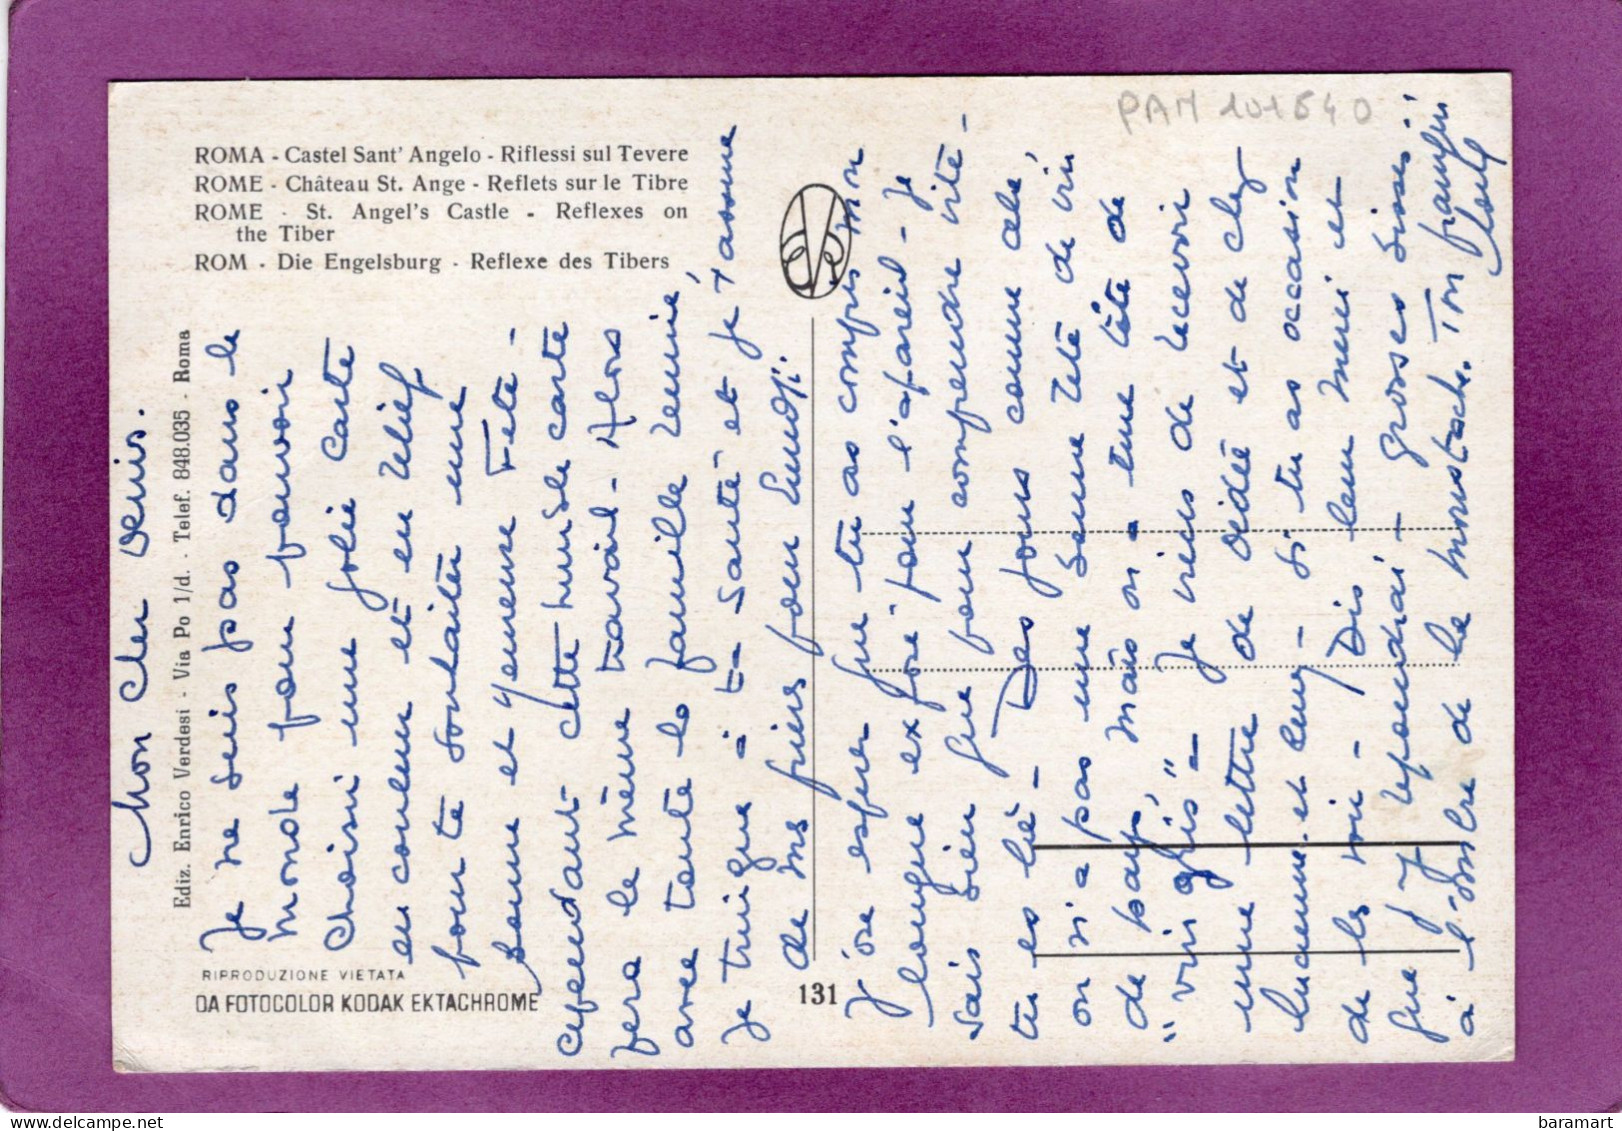 PAM 101640
ROMA - Castel Sant' Angelo - Riflessi sul Tevere
ROME - Château St. Ange - Reflets sur le Tibre
ROME - St. Angel's Castle - Reflexes on
the Tiber
ROM - Die Engelsburg - Reflexe des Tibers
Ediz. Enrico Verdesi - Via Po 1/d. - Telef. 848.035 - Roma
RIPRODUZIONE VIETATA
DA FOTOCOLOR KODAK EKTACHROME
131
Mon cher Denis.
Je ne suis pas dans le
monde pour pouvoir
choisir une jolie carte
en couleur et en relief
pour te souhaiter une
bonne et heureuse Fête -
cependant cette humble carte
fera le même travail - Alors
avec toute la famille réunie,
Je trinque à ta santé et je t'assure
de mes prières pour lundi.
J'ose espérer que tu as compris mon
longue exposé pour l'appareil - Je
sais bien que pour comprendre vite -
tu es lié - Des jours comme cela,
on n'a pas une bonne tête de vin
de pays, mais on a une tête de
"vin gris" - Je viens de recevoir
une lettre de Dédé et de chez
Lucienne et Leny - si tu as occasion
de les voir - Dis leur merci et
que je répondrai - grosses bises !
à l'ombre de la moustache. Ton frangin
baramart